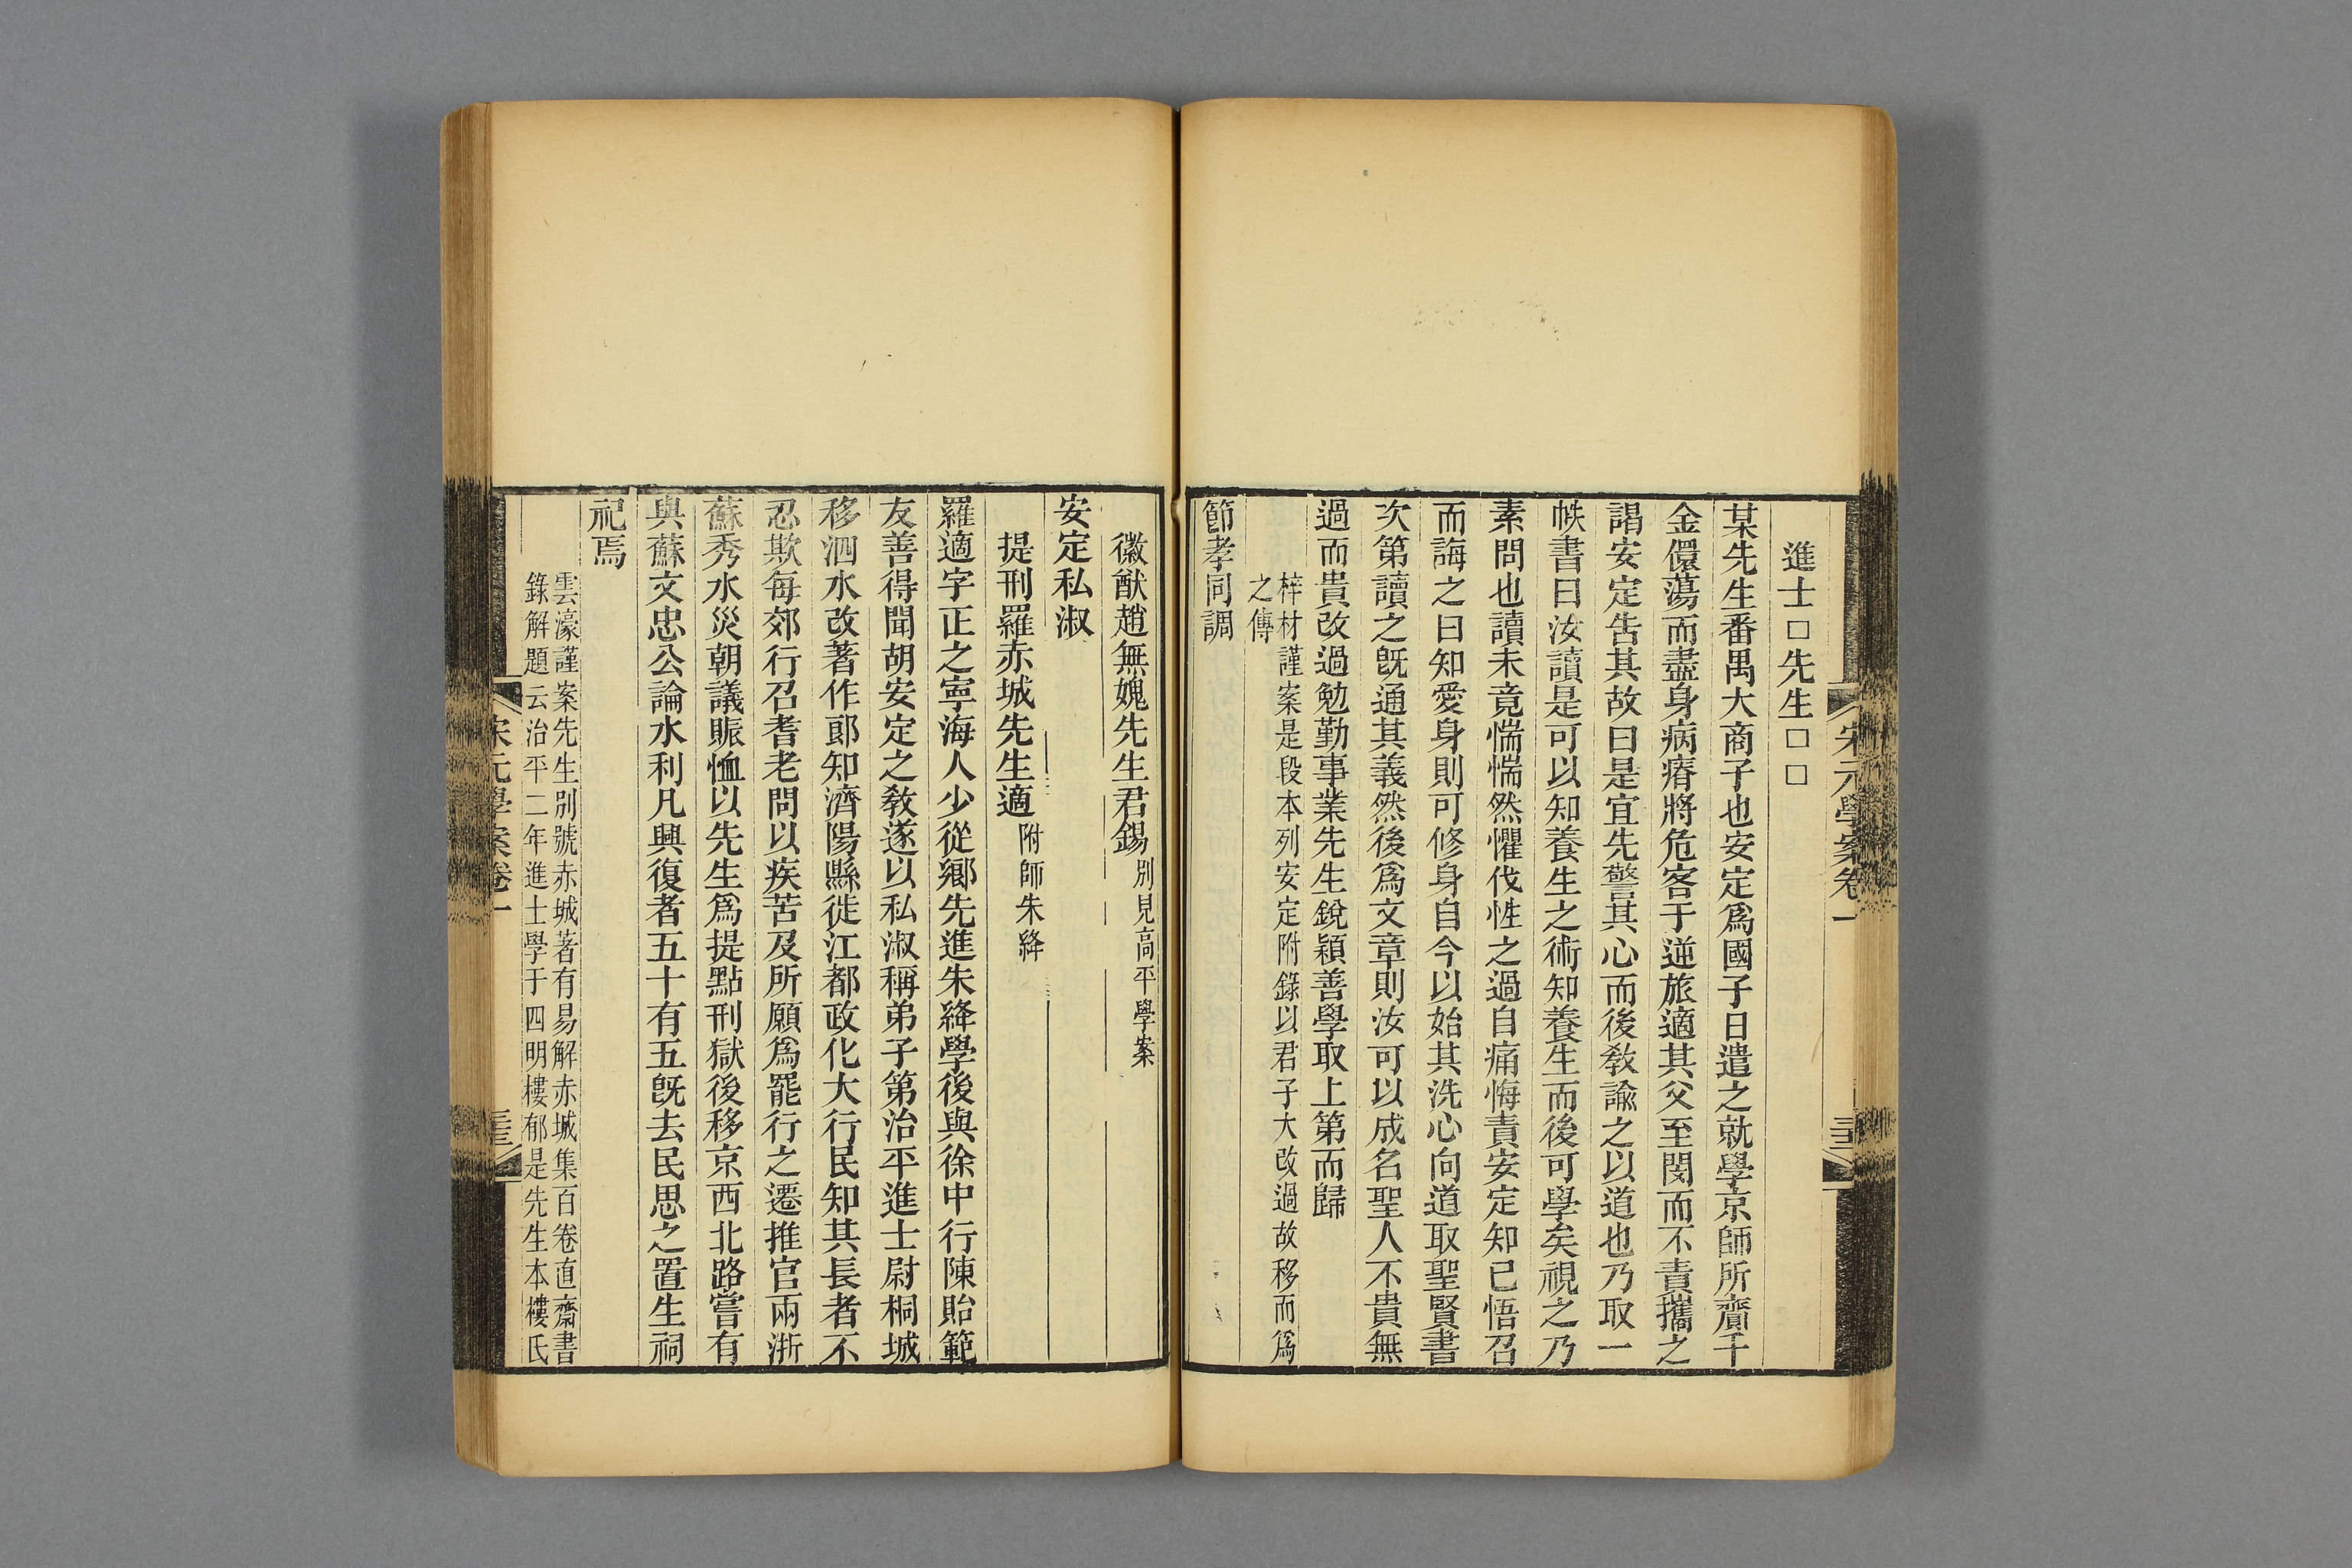 宋元學案卷一
進士□先生□□
某先生番禺大商子也安定爲國子日遣之就學京師所齎千
金儇蕩而盡身病瘠將危客于逆旅適其父至閔而不責攜之
謁安定告其故曰是宜先警其心而後敎諭之以道也乃取一
帙書曰汝讀是可以知養生之術知養生而後可學矣視之乃
素問也讀未竟惴惴然懼伐性之過自痛悔責安定知已悟召
而誨之曰知愛身則可修身自今以始其洗心向道取聖賢書
次第讀之旣通其義然後爲文章則汝可以成名聖人不貴無
過而貴改過勉勤事業先生銳穎善學取上第而歸
梓材謹案是段本列安定附錄以君子大改過故移而爲
之傳
節孝同調
徽猷趙無媿先生君錫別見高平學案
安定私淑
提刑羅赤城先生適附師朱絳
羅適字正之寧海人少從鄉先進朱絳學後與徐中行陳貽範
友善得聞胡安定之敎遂以私淑稱弟子第治平進士尉桐城
移泗水改著作郎知濟陽縣徙江都政化大行民知其長者不
忍欺每郊行召耆老問以疾苦及所願爲罷行之遷推官兩浙
蘇秀水災朝議賑恤以先生爲提點刑獄後移京西北路嘗有
與蘇文忠公論水利凡興復者五十有五旣去民思之置生祠
祀焉
雲濠謹案先生別號赤城著有易解赤城集百卷直齋書
錄解題云治平二年進士學于四明樓郁是先生本樓氏
宋元學案卷一